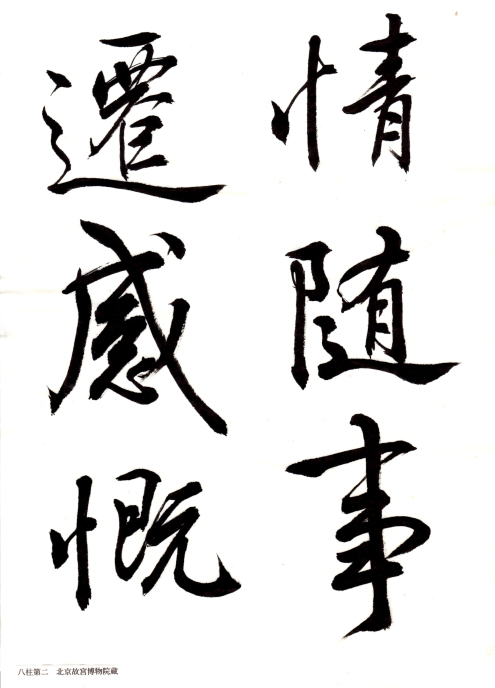 情随事
遷感慨
八柱第二　北京故宮博物院蔵